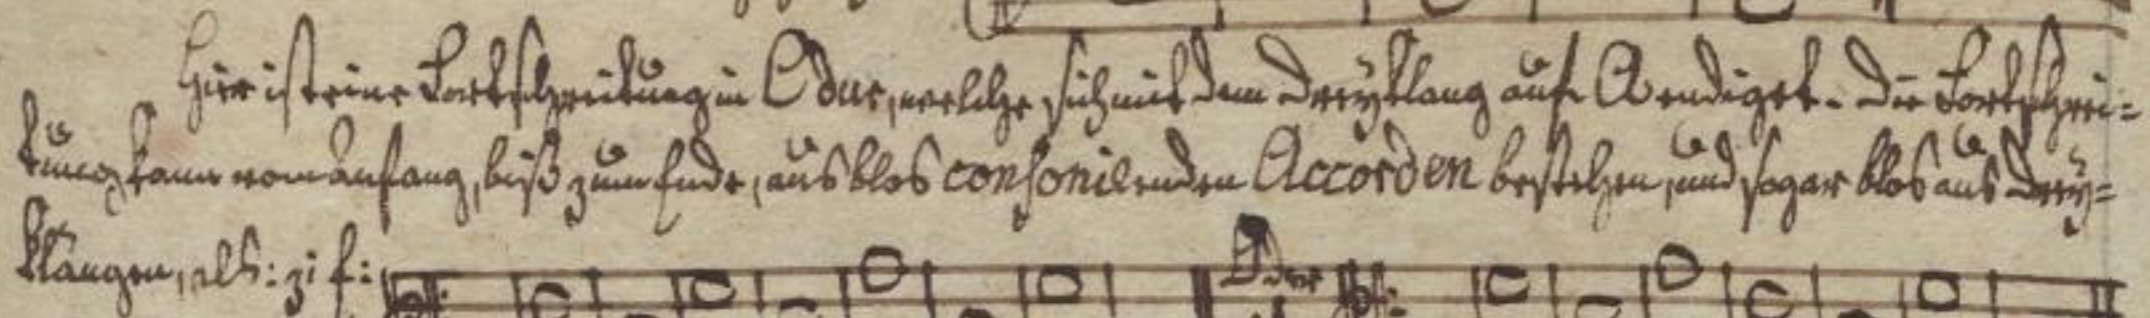 Hier ist eine Fortschreitung in C dur, welche sich mit dem Dreyklang auf A endiget. Die Fortschrei=
tung kann vom Anfang, biß zum Ende, aus blos consonirenden Accorden bestehen, und sogar blos aus Drey=
klängen, als: z: E:
D dur